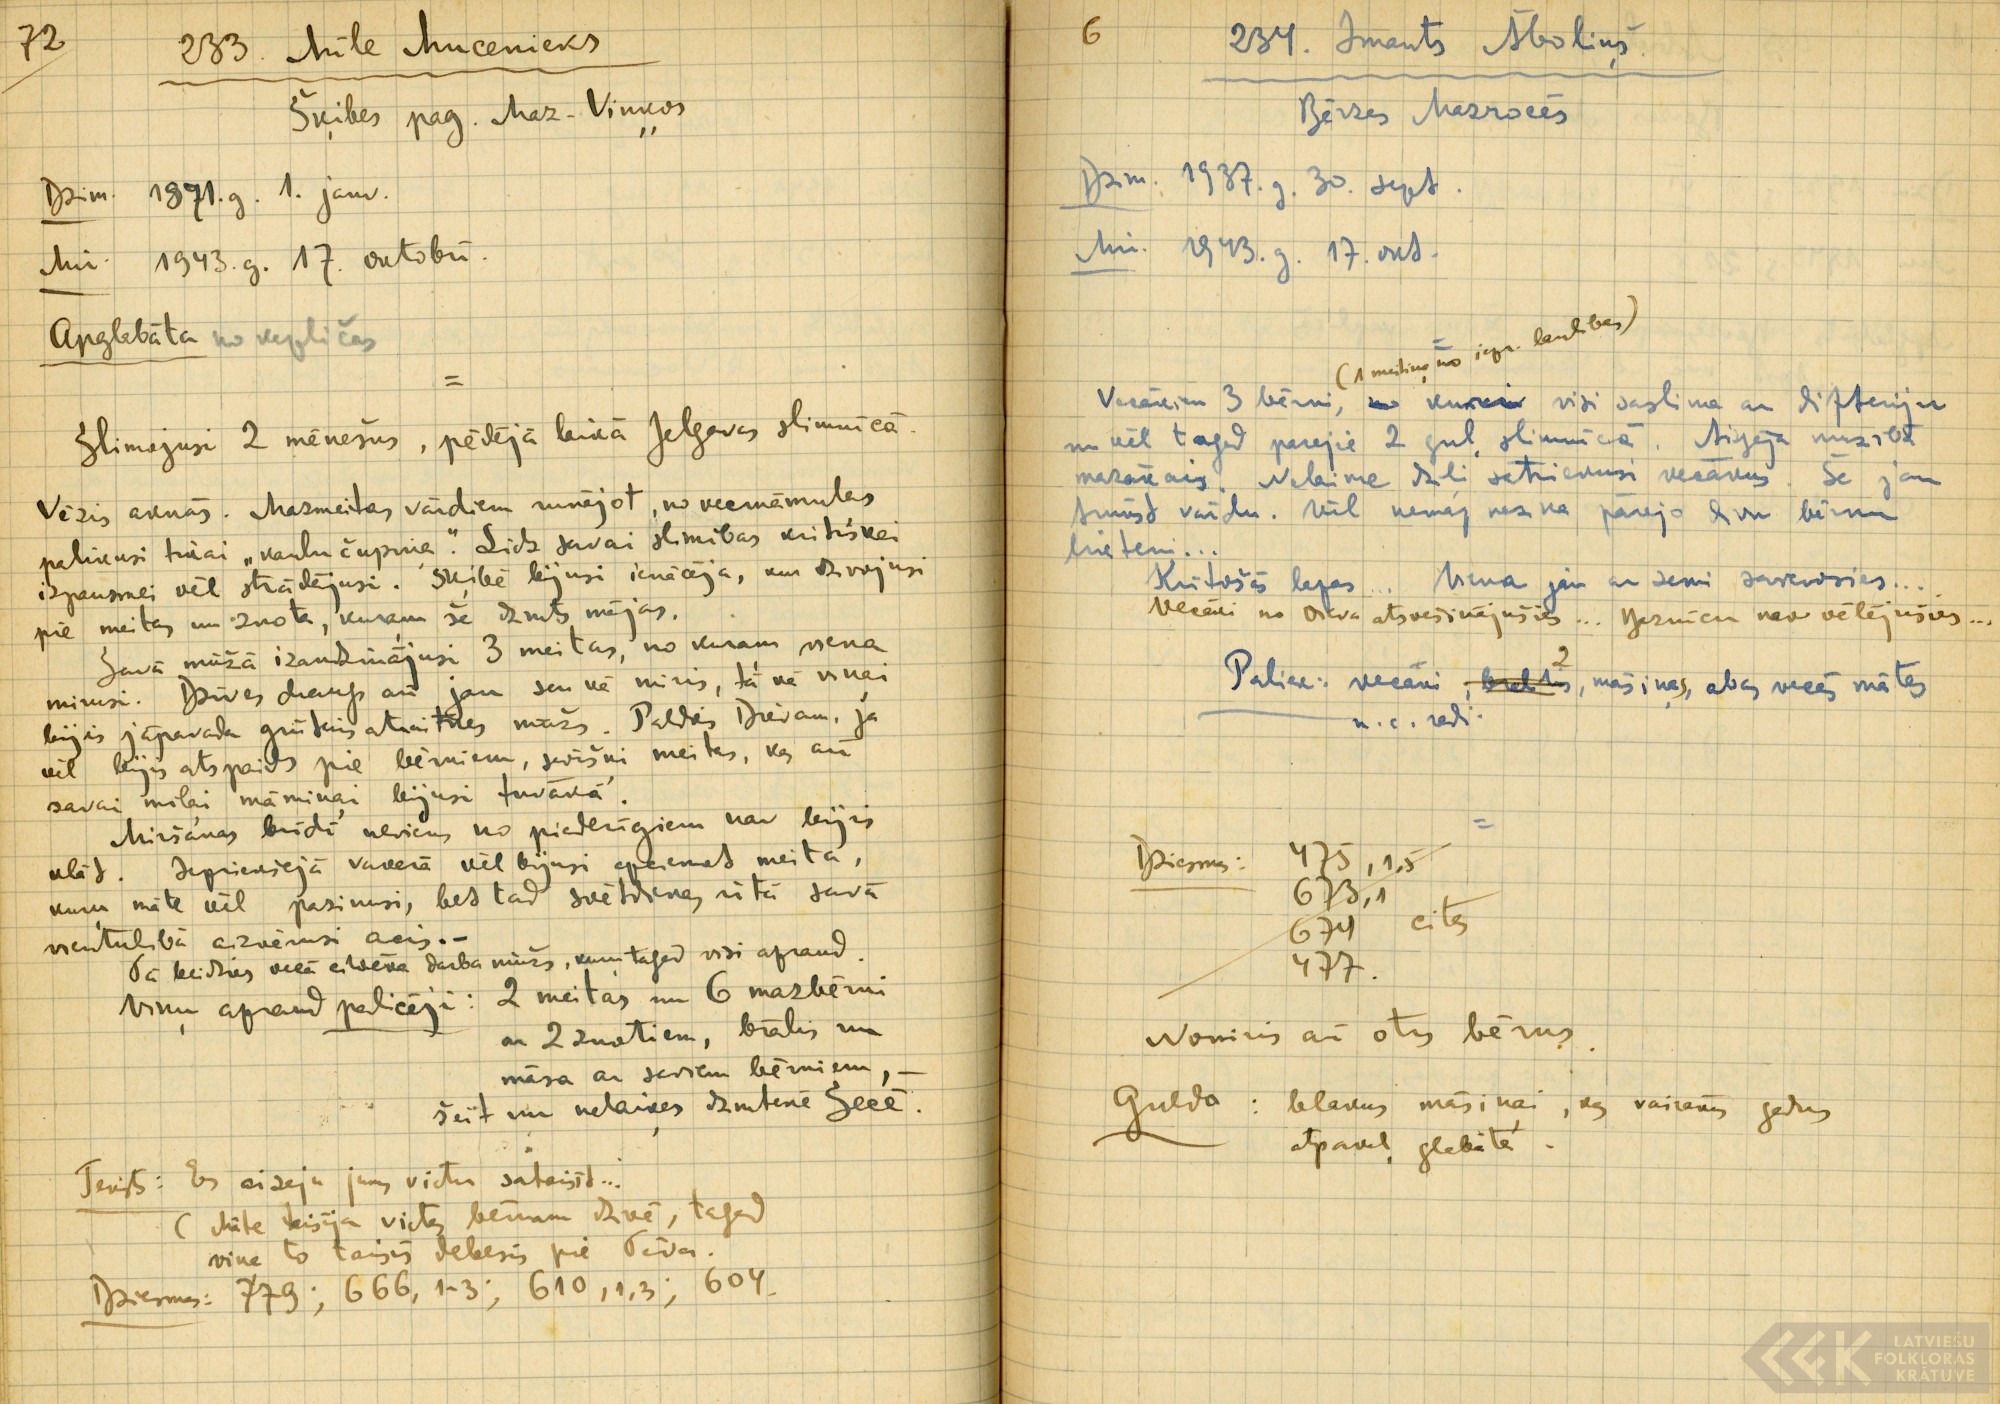 72
233. Mīle Mucenieks
Šķibes pag. Maz-Viņķos
Dzim. 1871.g. 1. janv.
Mir. 1943.g. 17. oktobrī.
Apglabāta no kapličas
=
Slimojusi 2 mēnešus, pēdējā laikā Jelgavas slimnīcā.
Vēzis aknās. Mazmeitas vārdiem runājot, no vecmāmuļas
palikusi tikai „kaulu čupiņa". Līdz savai slimības kritiskai
izpausmei vēl strādājusi. Šķibē bijusi ienācēja, kur dzīvojusi
pie meitas un znota, kuram še dzimts mājas.
Savā mūžā izaudzinājusi 3 meitas, no kuram viena
mirusi. Dzīves draugs arī jau sen kā miris, tā kā viņai
bijis jāpavada grūtais atraitnes mūžs. Paldies Dievam, ja
vēl bijis atspaids pie bērniem, sevišķi meitas, kas arī
savai mīļai māmiņai bijusi tuvākā.
Miršanas brīdī neviens no piederīgiem nav bijis
klāt. Iepriekšejā vakarā vēl bijusi apciemot meita,
kuŗu māte vēl pazinusi, bet tad svētdienas rītā savā
vientulībā aizvērusi acis.-
Tā beidzies vecā cilvēka darba mūžs, kuru tagad visi apraud.
Viņu apraud palicēji: 2 meitas un 6 mazbērni
ar 2 znotiem, brālis un
māsa ar saviem bērniem, –
šeit un nelaiķes dzimtenē Sēcē.
Teksts: Es aizeju jums vietu sataisīt...
( Māte taisīja vietas bērnam dzīvē, tagad
viņa to taisīs debesīs pie Tēva.
Dziesmas: 779; 666, 1-3; 610, 1,3; 604.
6
234. Imants Āboliņš.
Bērzes Mazrocēs
Dzim. 1937.g. 30. sept.
Mir. 1943.g. 17. okt.
=
(1 meitiņa no iepr. laulības)
Vecākiem 3 bērni, no kuriem visi saslima ar difteriju
un vēl tagad parejie 2 guļ slimnīcā. Aizgāja mūzībā
mazākais. Nelaime dziļi satriekusi vecākus. Še jau
trūkst vārdu. Vēl nemaz nezina pārejo divu bērnu
likteni...
Kritošās lapas... Viena jau ar zemi savienosies...
Vecāki no Dieva atsvešinājušies... Baznīcu nav vēlējušies...
Paliek: vecāki, brālītis, 2 māsiņas, abas vecās mātes
u. c. radi.
=
Dziesmas: 475, 1,5
673,1
674 citas
477.
Nomiris arī otrs bērns.
Gulda: blakus māsiņai, kas vairākus gadus
atpakaļ glabāta.
LATVIEŠU
FOLKLORAS
KRĀTUVE